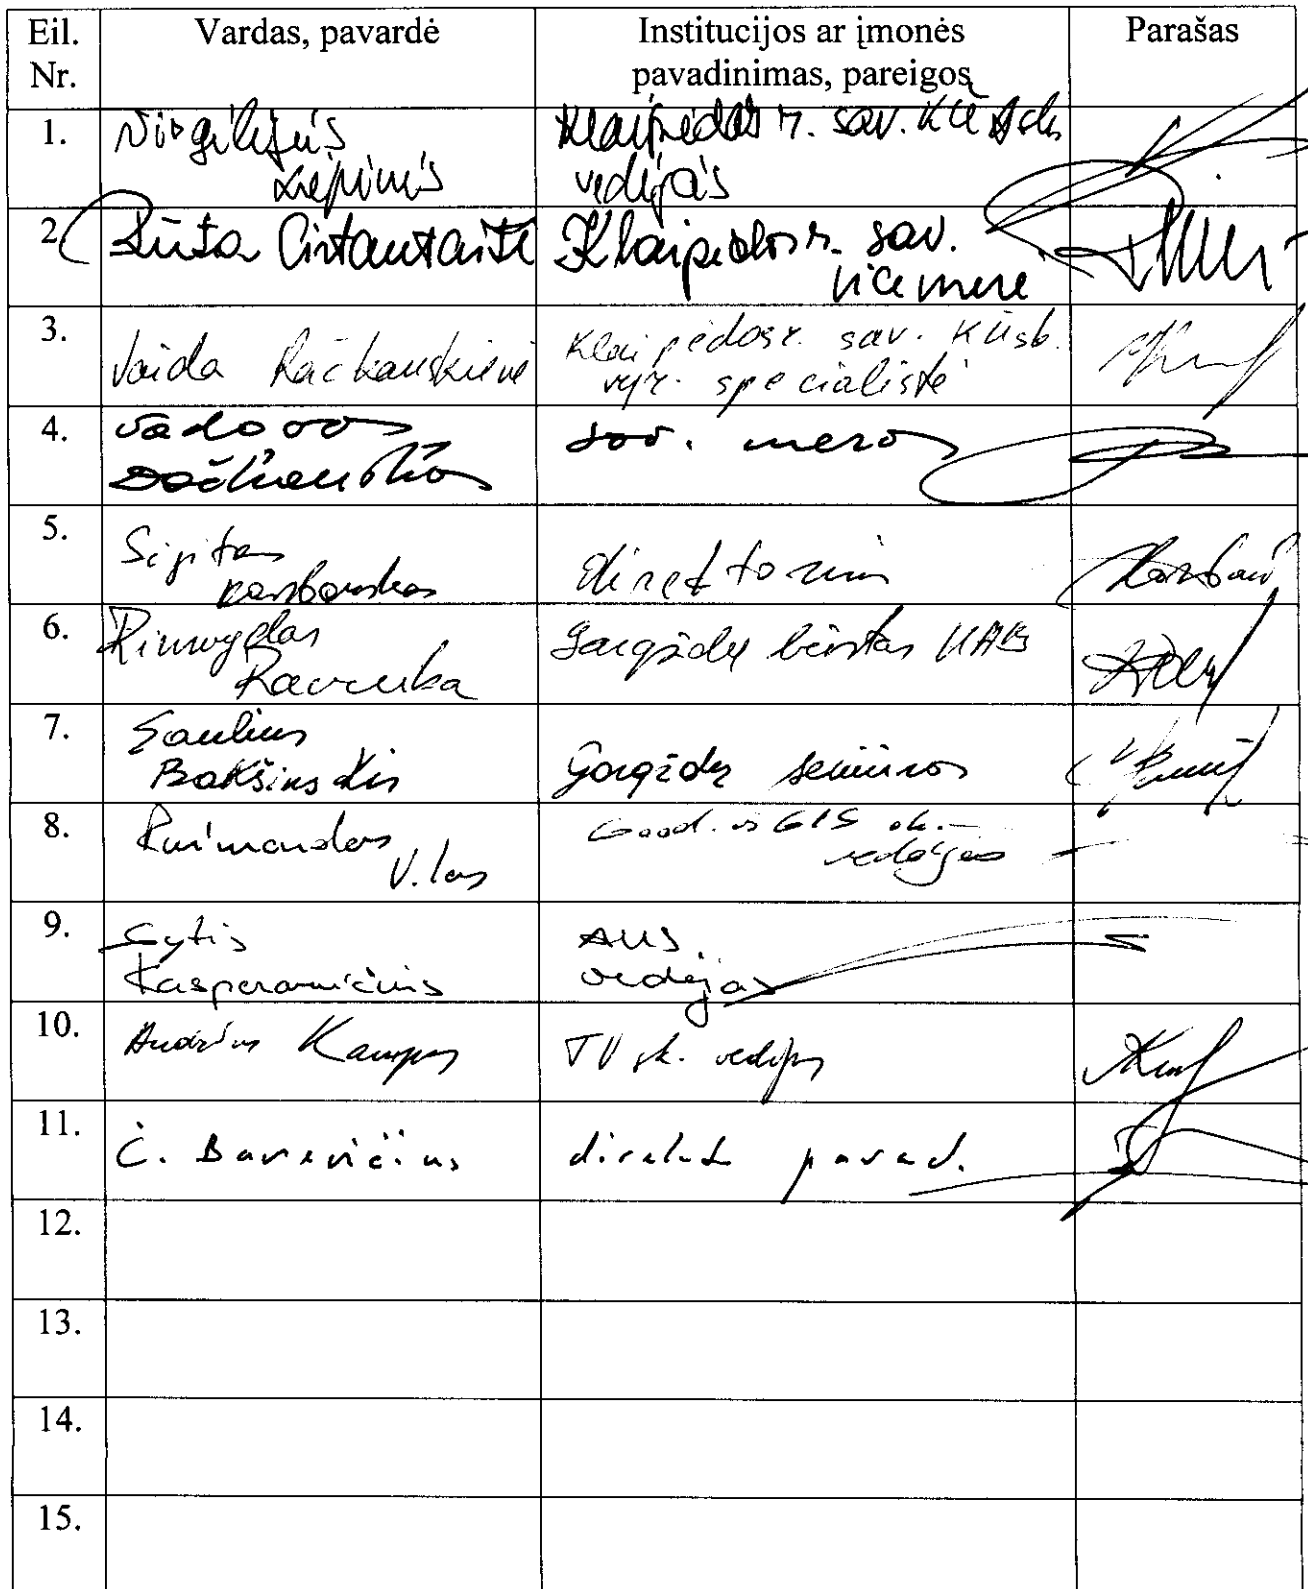 Eil. Nr. Vardas, pavardė Institucijos ar įmonės pavadinimas, pareigos Parašas
1. Virgilijus Liepinis Klaipėdos r. sav. vedėjas
2. Rūta Cirtautaitė Klaipėdos r. sav. vicemerė
3. Vaida Račkauskienė Klaipėdos r. sav. vyr. specialistė
4. Vaclovas Dačkauskas sav. meras
5. Sigitas Karbauskas direktorius
6. Rimvydas Gargždų būstas UAB
7. Saulius Bakšinskis Gargždų seniūnas
8. Raimondas Vilas Geod. ir GIS sk. vedėjas
9. Gytis Kasperavičius AUS vedėjas
10. Andrius Kampas TV sk. vedėjas
11. Č. Banevičius direkt. pavad.
12.
13.
14.
15.